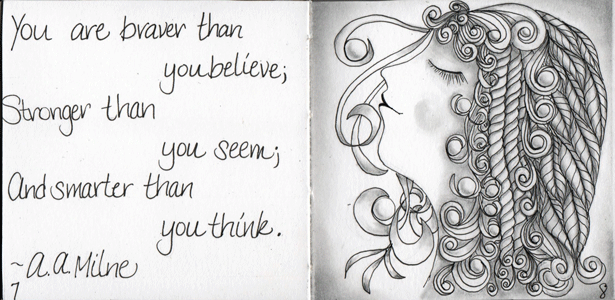 You are braver than
you believe;
Stronger than
you seem;
And smarter than
you think.
~A.A.Milne
7
8